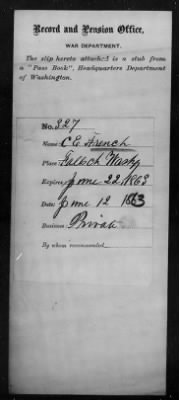 Record and Pension Office,
WAR DEPARTMENT.
The slip hereto attached is a stub from
a "Pass Book", Headquarters Department
of Washington.
No. 327
Name: C E French
Place: Falls ch Washn
Expires: June 22 1863
Date: June 12 1863
Business: Private
By whom recommended